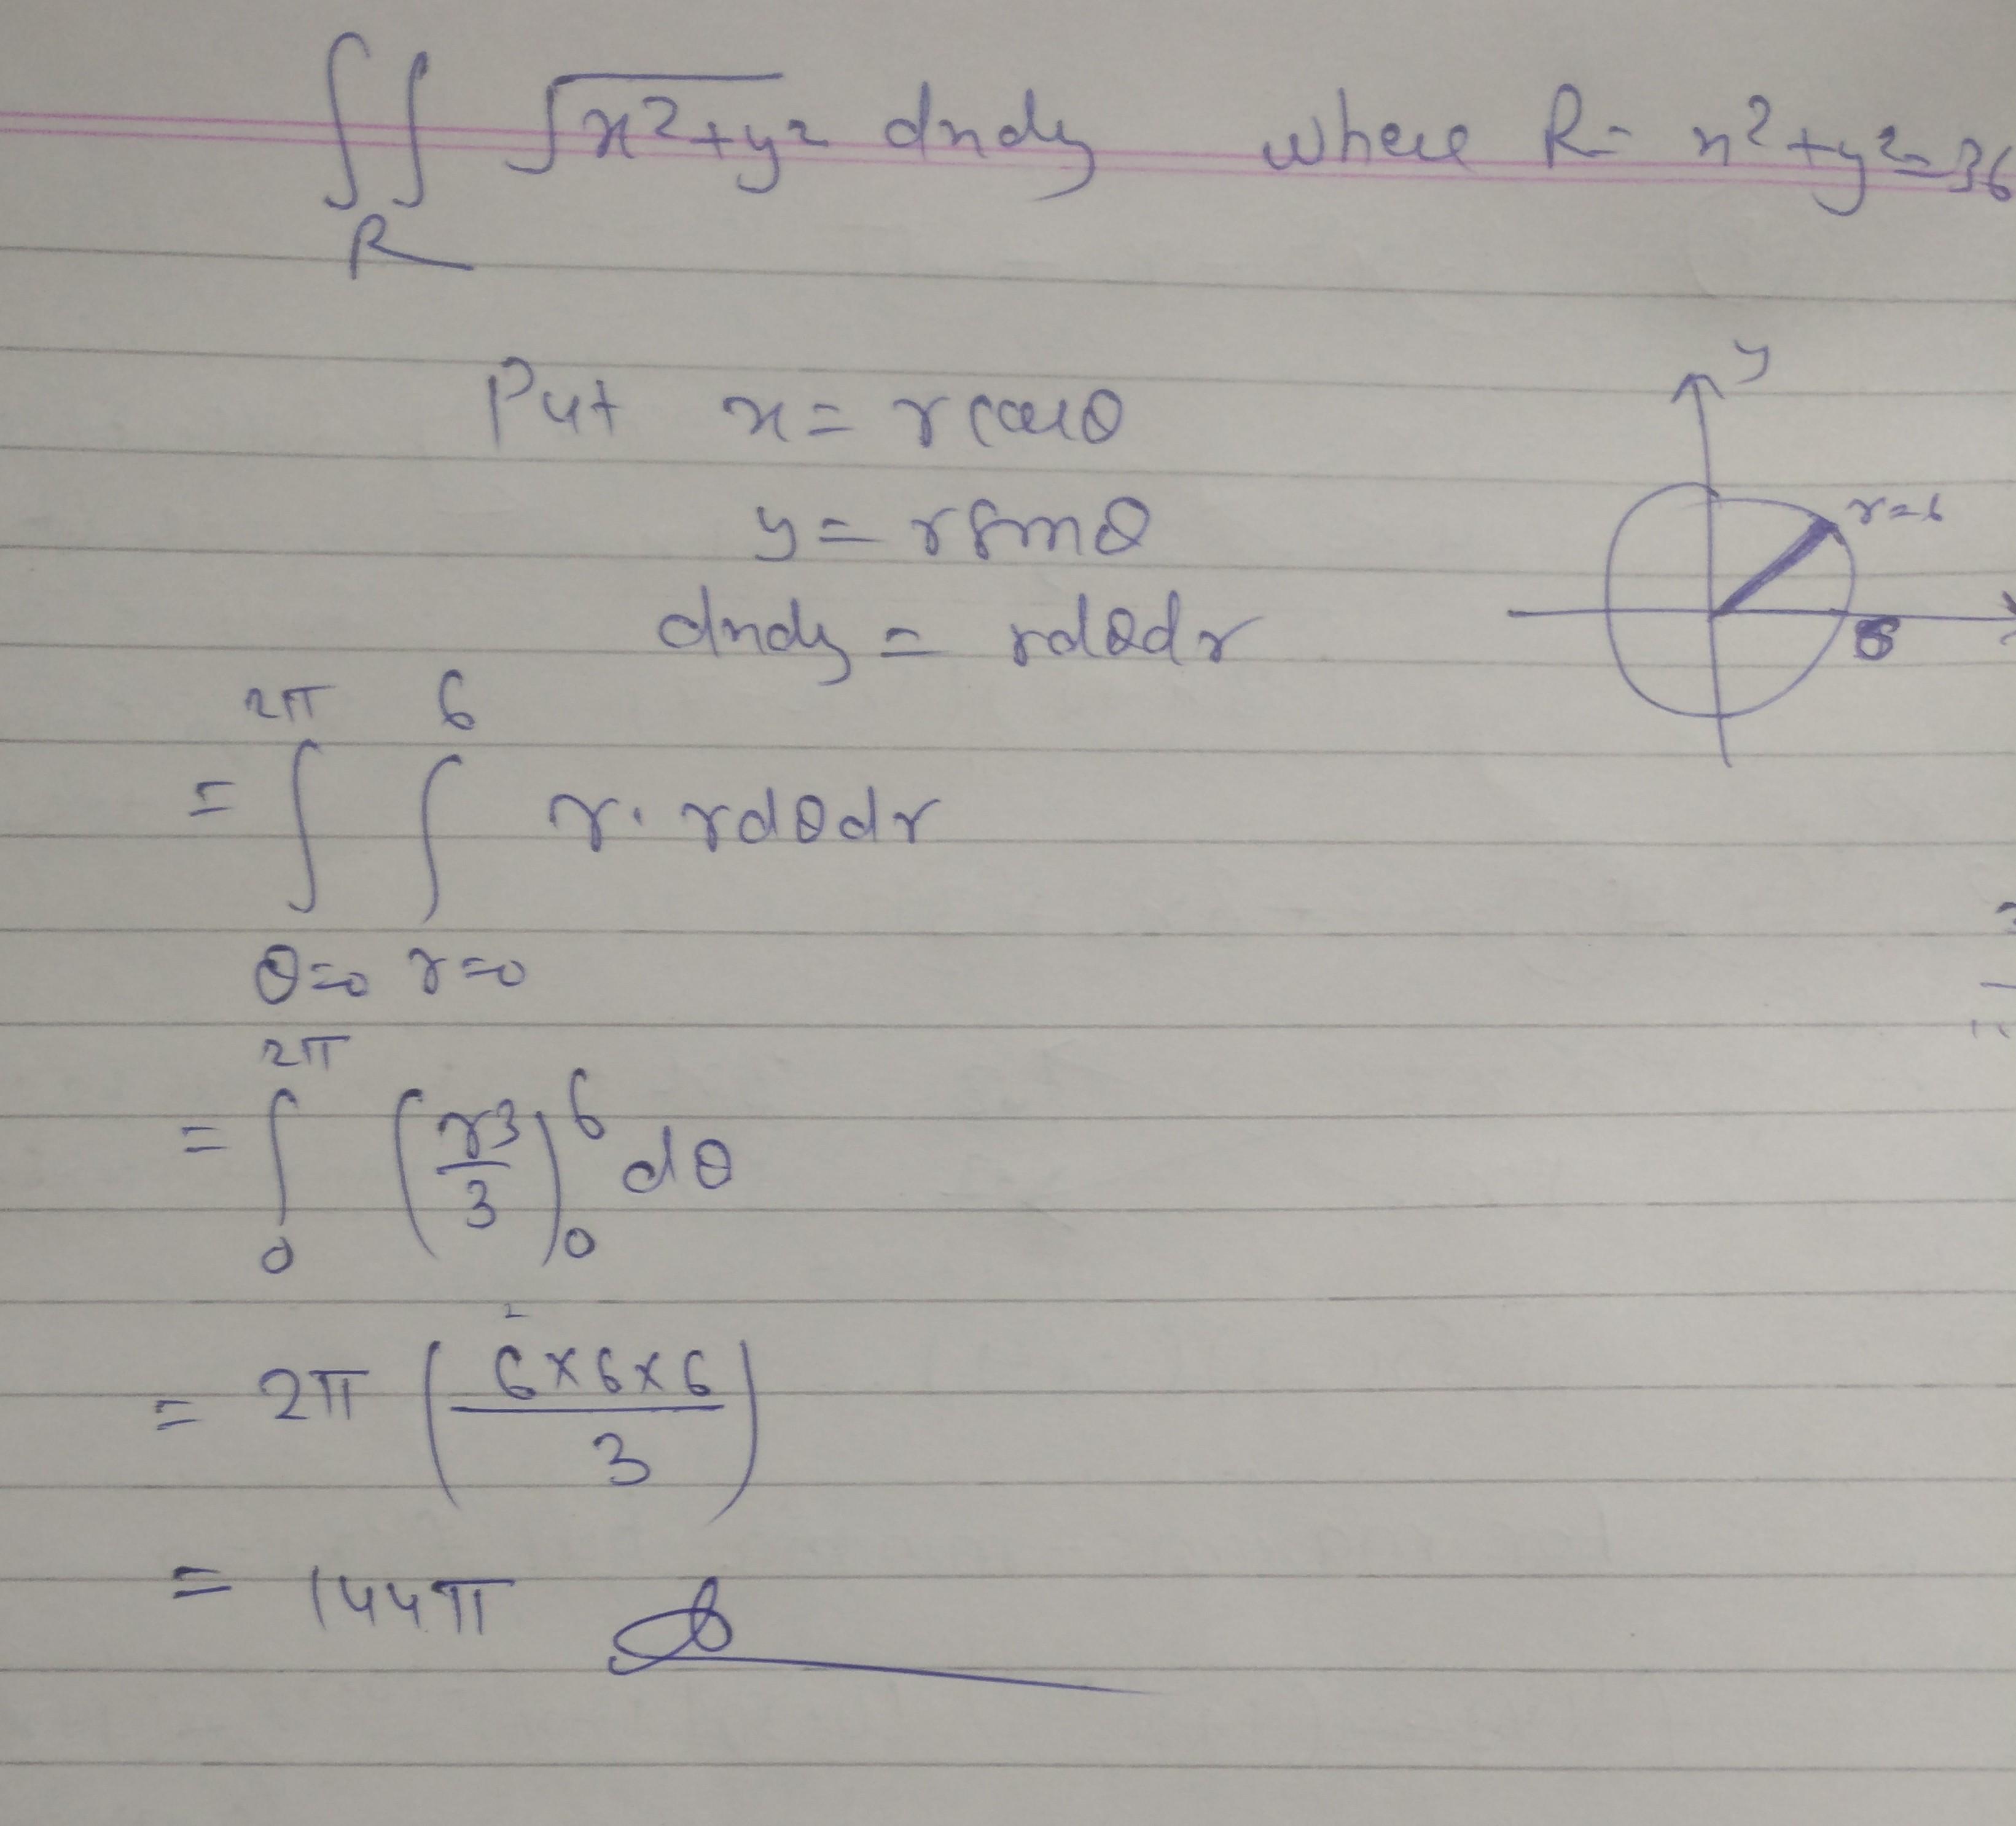 ∬_R √(x²+y²) dxdy where R= x²+y²=36
Put x = r cosθ
y = r sinθ
dxdy = rdθdr
y
r=6
6
= ∫_{θ=0}^{2π} ∫_{r=0}^{6} r. rdθdr
= ∫_0^{2π} (r3/3)_0^6 dθ
= 2π (6×6×6/3)
= 144π